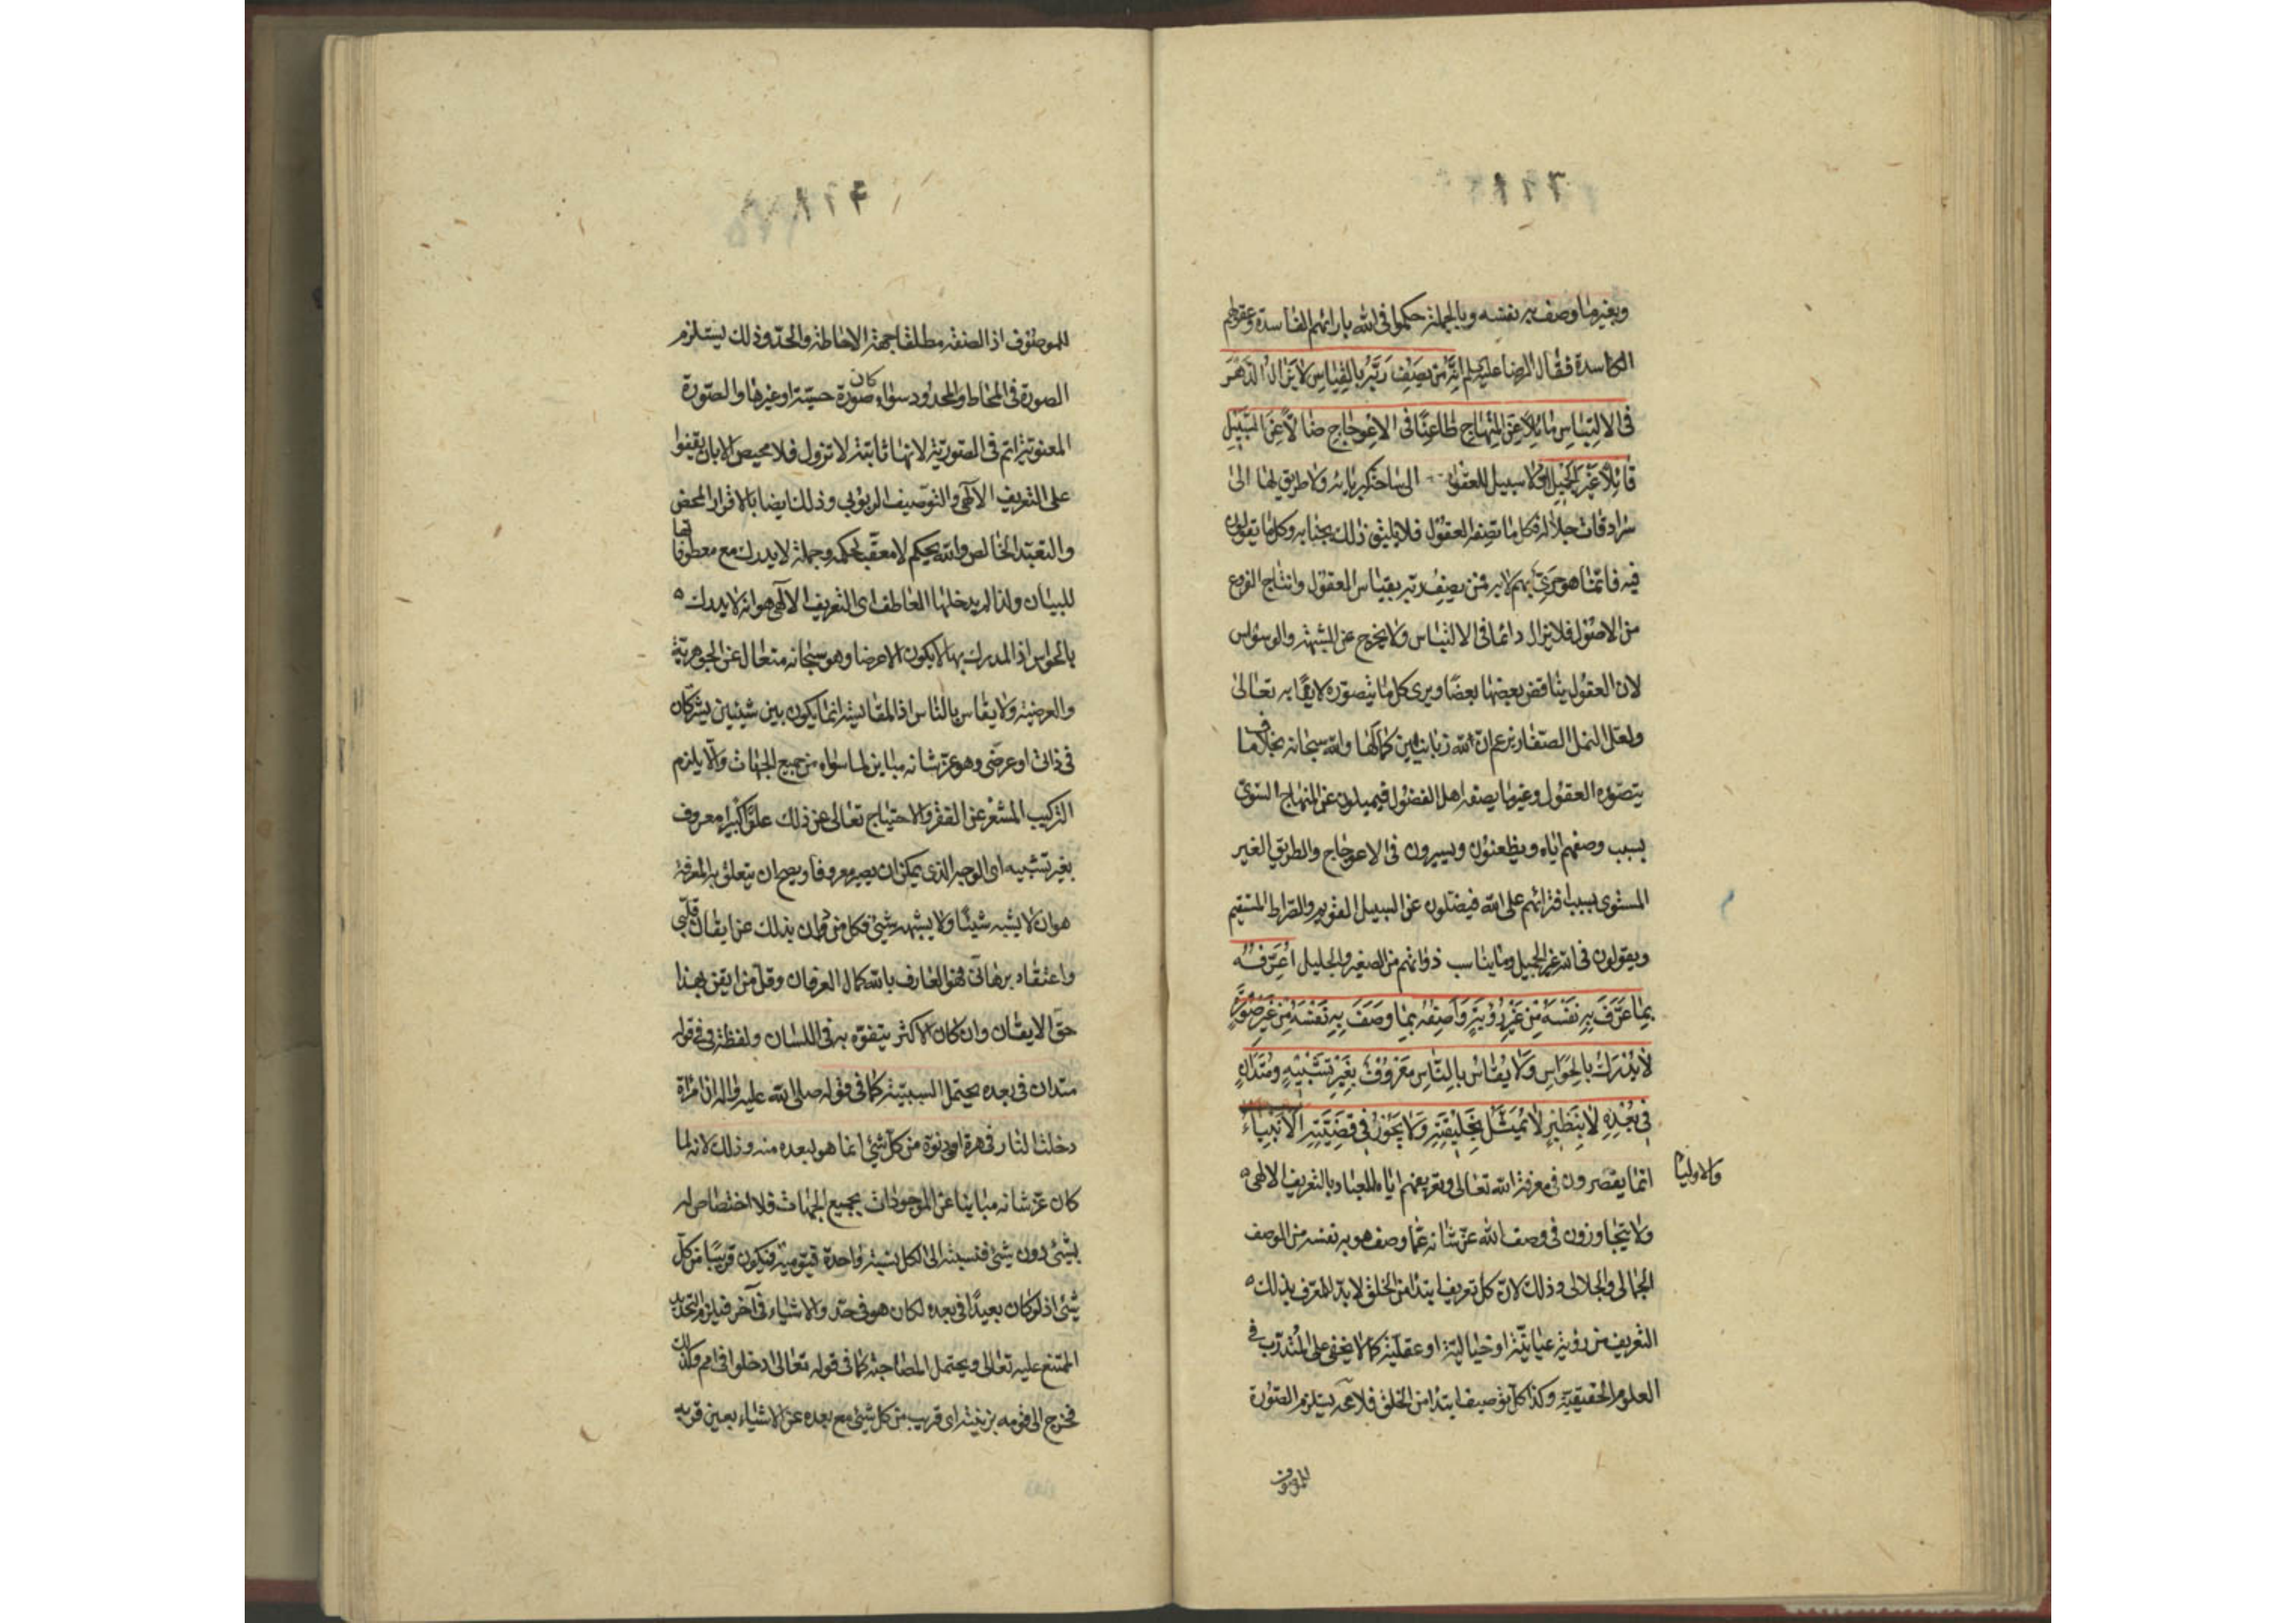 وبغير ما وصف به نفسه وبالجملة حكموا في الله بارائهم الفاسدة وعقولهم
الكاسدة فقال الرضا عليه السلم انه من يصف ربه بالقياس لا يزال الدهر
في الالتباس مائلا عن المنهاج ظاعنا في الاعوجاج ضالا عن السبيل
قائلا غير الجميل ولا سبيل للعقول الى ساحة كبريائه ولا طريق لها الى
سرادقات جلاله فكل ما تصفه العقول فلا يليق ذلك بجنابه وكل ما يقولون
فيه فانما هو جرى بهم لا به فمن يصف ربه بقياس العقول وانتاج الفروع
من الاصول فلا يزال دائما في الالتباس ولا يخرج عن الشبهة والوسواس
لان العقول يناقض بعضها بعضا ويرى كل ما يتصوره لايقا به تعالى
ولعل النمل الصغار يزعم ان لله زبانيتين كمالها والله سبحانه بخلاف ما
يتصوره العقول وغير ما يصفه اهل الفضول فيميلون عن المنهاج السوى
بسبب وصفهم اياه ويظعنون ويسيرون في الاعوجاج والطريق الغير
المستوى بسبب افترائهم على الله فيضلون عن السبيل القويم والصراط المستقيم
ويقولون في الله غير الجميل وما يناسب ذواتهم من الصغير والجليل اعرفه
بما عرف به نفسه من غير رؤية واصفه بما وصف به نفسه من غير صورة
لا يدرك بالحواس ولا يقاس بالناس معروف بغير تشبيه ومتدان
في بعده لا بنظير لا يمثل بخليقته ولا يجوز في قضيته الانبياء
والاولياء
انما يقصرون في معرفة الله تعالى وتعريفهم اياه للعباد بالتعريف الالهى
ولا يتجاوزون في وصف الله عز شانه عما وصف هو به نفسه من الوصف
الجمالى والجلالى وذلك لان كل تعريف ابتدا من الخلق لا بد للمعرف بذلك
التعريف من رؤية عيانية او خيالية او عقلية كما لا يخفى على المتدرب في
العلوم الحقيقية وكذا كل توصيف ابتدا من الخلق فلا محه يستلزم الصورة
للموصوف
للموصوف اذ الصفة مطلقا جهة الاحاطة والحد وذلك يستلزم
الصورة في المحاط والمحدود سواء كان صورة حسية او غيرها والصورة
المعنوية اتم في الصورية لانها ثابتة لا تزول فلا محيص الا بان يقفوا
على التعريف الالهى والتوصيف الربوبى وذلك ايضا بالاقرار المحض
والتعبد الخالص والله يحكم لا معقب لحكمه وجملة لا يدرك مع معطوفاتها
للبيان ولذا لم يدخلها العاطف اى التعريف الالهى هو انه لا يدرك
بالحواس اذ المدرك بها لا يكون الا عرضا وهو سبحانه متعال عن الجوهرية
والعرضية ولا يقاس بالناس اذ المقايسة انما يكون بين شيئين يشتركان
في ذاتى او عرضى وهو عز شانه مباين لما سواه من جميع الجهات والا يلزم
التركيب المشعر عن الفقر والاحتياج تعالى عن ذلك علوا كبيرا معروف
بغير تشبيه اى الوجه الذى يمكن ان يصير معروفا ويصح ان يتعلق به المعرفة
هو ان لا يشبه شيئا ولا يشبهه شىء فكل من قران بذلك عن ايقان قلبى
واعتقاد برهانى فهو العارف بالله كمال العرفان وقل من ايقن بهذا
حق الايقان وان كان الاكثر يتفوه به في اللسان ولفظة في في قوله
متدان في بعده يحتمل السببية كما في قوله صلى الله عليه واله ان امراة
دخلت النار في هرة اى دنوه من كل شىء انما هو لبعده منه وذلك لانه لما
كان عز شانه مباينا عن الموجودات بجميع الجهات فلا اختصاص له
بشىء دون شىء فنسبته الى الكل نسبة واحدة قيومية فيكون قريبا من كل
شىء اذ لو كان بعيدا في بعده لكان هو في حد والاشياء في آخر فيلزم التحديد
الممتنع عليه تعالى ويحتمل المصاحبة كما في قوله تعالى ادخلوا في امم وكذلك
فخرج الى قومه بزينته اى قريب من كل شىء مع بعده عن الاشياء بعين قربه